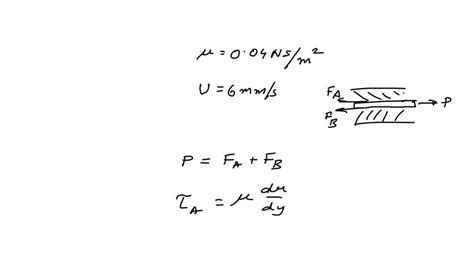 μ = 0.04 Ns/m²
U = 6 mm/s
F_A
P
F_B
P = F_A + F_B
τ_A = μ du/dy